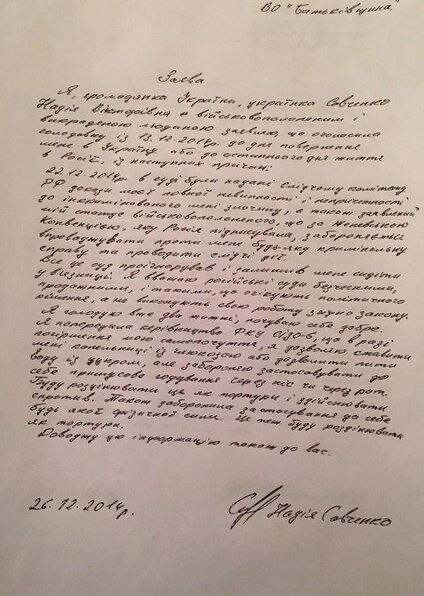 ВО "Батьківщина"
Заява
Я, громадянка України, українка Савченко
Надія Вікторівна є військовополоненим і
викраденою людиною заявляю, що оголосила
голодовку із 13.12.2014р. до дня повернення
мене в Україну або до останнього дня життя
в Росії, із наступних причин:
22.12.2014р. в суді були надані Слідчому комітету
РФ докази моєї повної невинності і непричетності
до інкримінованого мені злочину, а також заявлений
мій статус військовополоненого, що за Женевською
Конвенцією, яку Росія підписувала, забороняється
впроваджувати проти мене будь-яку кримінальну
справу та проводити слідчі дії.
Все це суд проігнорував і залишив мене сидіти
у в'язниці. Я вважаю російські суди безчесними,
продатними, і такими, що очікують політичного
рішення, а не виконують свою роботу згідно закону.
Я голодую вже два тижні, почуваю себе добре.
Я попередила керівництво ФКУ СІЗО-6, що в разі
погіршення мого самопочуття, я дозволяю ставити
мені капельниці із глюкозою або дозволити пити
воду із цукром, але забороняю застосовувати до
себе примусове годування через ніс чи через рот.
Буду розцінювати це як тортури і здійснювати
спротив. Також заборонила застосування до себе
будь якої фізичної сили. Це теж буду розцінювати
як тортури.
Доводжу цю інформацію також до вас.
26.12.2014р.
Надія Савченко